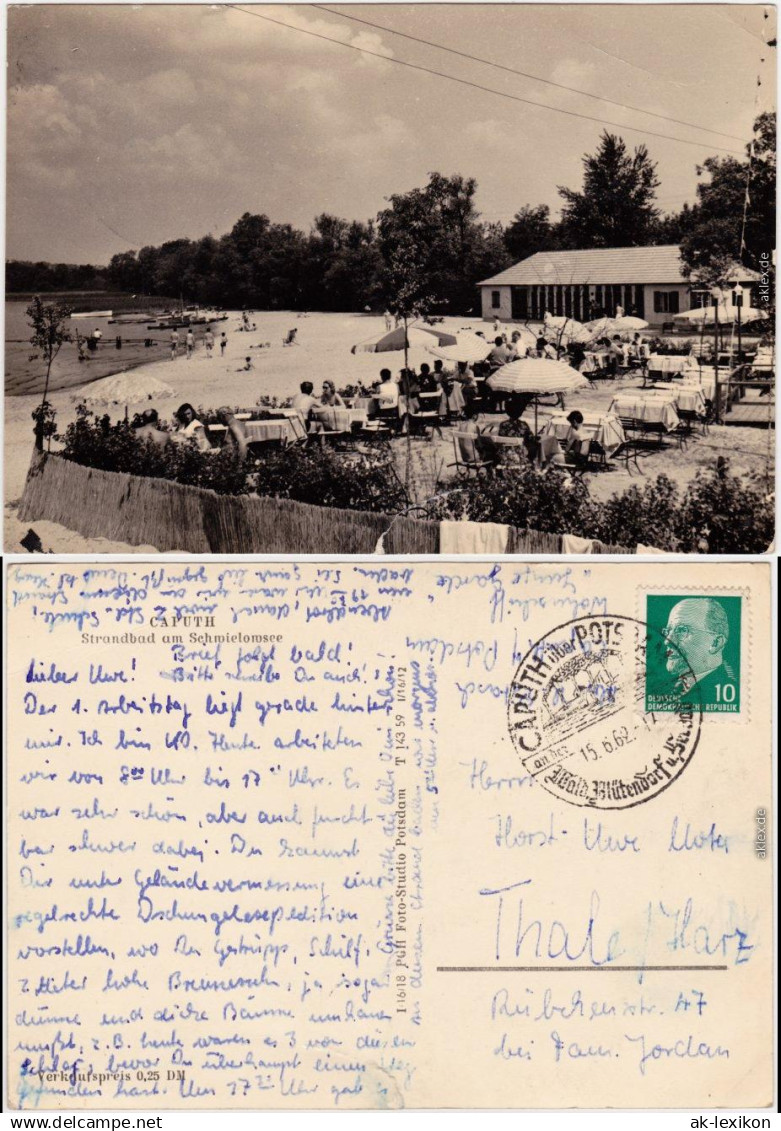 CAPUTH
Strandbad am Schmielowsee
Brief folgt bald!
Lieber Uwe! Bitte schreibe Du auch!
Der 1. Arbeitstag liegt gerade hinter
mir. Ich bin KO. Heute arbeiteten
wir von 8⁰⁰ Uhr bis 17 Uhr. Es
war sehr schön, aber auch furcht-
bar schwer dabei. Du kannst
Dir unter Geländevermessung eine
regelrechte Dschungelexpedition
vorstellen, wo Du Gestrüpp, Schilf,
2 Meter hohe Brennesseln, ja sogar
dünne und dicke Bäume umhauen
mußt, z.B. heute waren es 3 von diesen
bevor Du überhaupt einen Weg
gefunden hast. Um 17 Uhr gab es
Verkaufspreis 0,25 DM
I/16/18 PGH Foto-Studio Potsdam T 143 59 I/16/12
CAPUTH über POTSDAM
15.6.62.-17
an der
Wald, Blütendorf u.
DEUTSCHE
DEMOKRATISCHE REPUBLIK
10
Herrn
Horst-Uwe Moter
Thale/Harz
Rübchenstr. 47
bei Fam. Jordan
aklex.de
aklex.de
ak-lexikon